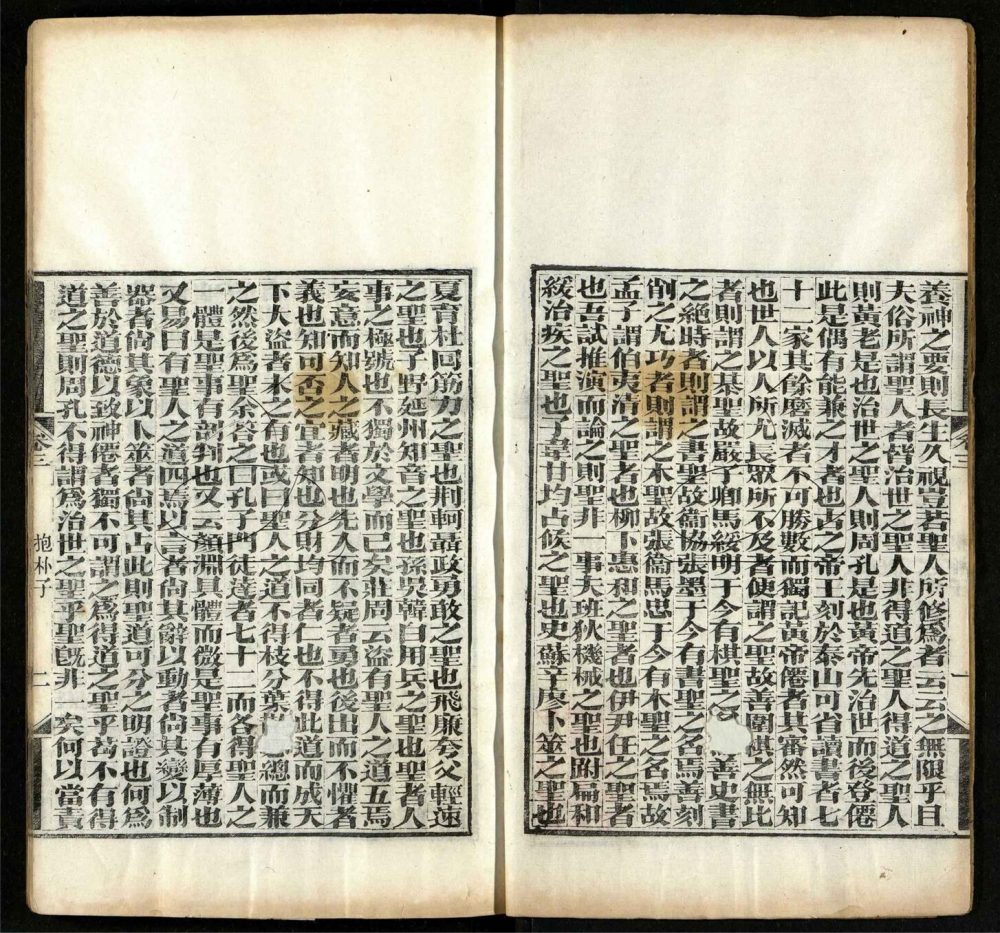 養神之要則長生久視豈若聖人所修爲者云云之無限乎且
夫俗所謂聖人者皆治世之聖人非得道之聖人得道之聖人
則黃老是也治世之聖人則周孔是也黃帝先治世而後登僊
此是偶有能兼之才者也古之帝王刻於泰山可省讀書者七
十二家其餘磨滅者不可勝數而獨記黃帝僊者其審然可知
也世人以人所尤長眾所不及者便謂之聖故善圍棋之無比
者則謂之棊聖故嚴子卿馬綏明于今有棋聖之 善史書
之絕時者則謂之書聖故衞協張墨于今有書聖之名焉善刻
削之尤巧者則謂之木聖故張衡馬忠于今有木聖之名焉故
孟子謂伯夷清之聖者也柳下惠和之聖者也伊尹任之聖者
也吾試推演而論之則聖非一事夫班狄機械之聖也附扁和
緩治疾之聖也子韋甘均占候之聖也史蘇辛廖卜筮之聖也
卷三
一
夏育杜回筋力之聖也荆軻聶政勇敢之聖也飛廉夸父輕速
之聖也子野延州知音之聖也孫吳韓白用兵之聖也聖者人
事之極號也不獨於文學而已矣莊周云盜有聖人之道五焉
妄意而知人之藏者明也先入而不疑者勇也後出而不懼者
義也知可否之宜者知也分財均同者仁也不得此道而成天
下大盜者未之有也或曰聖人之道不得枝分葉 總而兼
之然後爲聖余答之曰孔子門徒達者七十二而各得聖人之
一體是聖事有剖判也又云顏淵具體而微是聖事有厚薄也
又易曰有聖人之道四焉以言者尚其辭以動者尚其變以制
器者尚其象以卜筮者尚其占此則聖道可分之明證也何爲
善於道德以致神僊者獨不可謂之爲得道之聖乎苟不有得
道之聖則周孔不得謂爲治世之聖乎聖旣非一矣何以當責
卷三
抱朴子
二